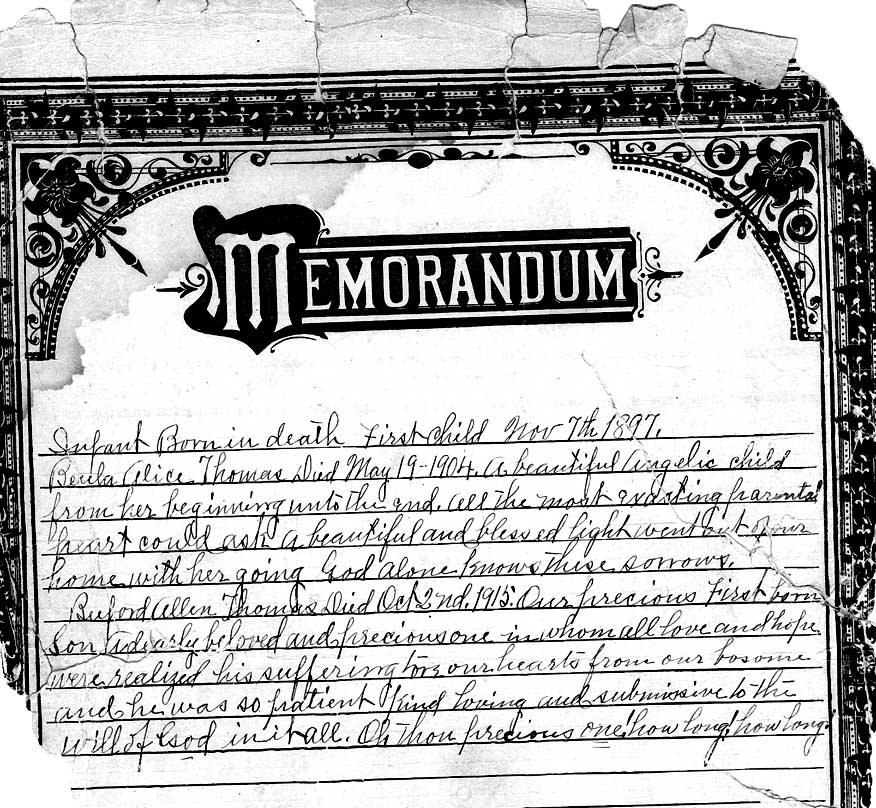 MEMORANDUM
Infant Born in death First Child Nov 7th 1897.
Beula Alice Thomas Died May 19-1904. A beautiful Angelic child
from her beginning unto the end. All the most exacting parental
heart could ask a beautiful and blessed light went out of our
home with her going God alone knows these sorrows.
Buford Allen Thomas Died Oct 2nd, 1915. Our precious First born
Son A dearly beloved and precious one in whom all love and hope
were realized his suffering tore our hearts from our bosoms
and he was so patient kind loving and submissive to the
will of God in it all. Oh thou precious one! how long! how long!